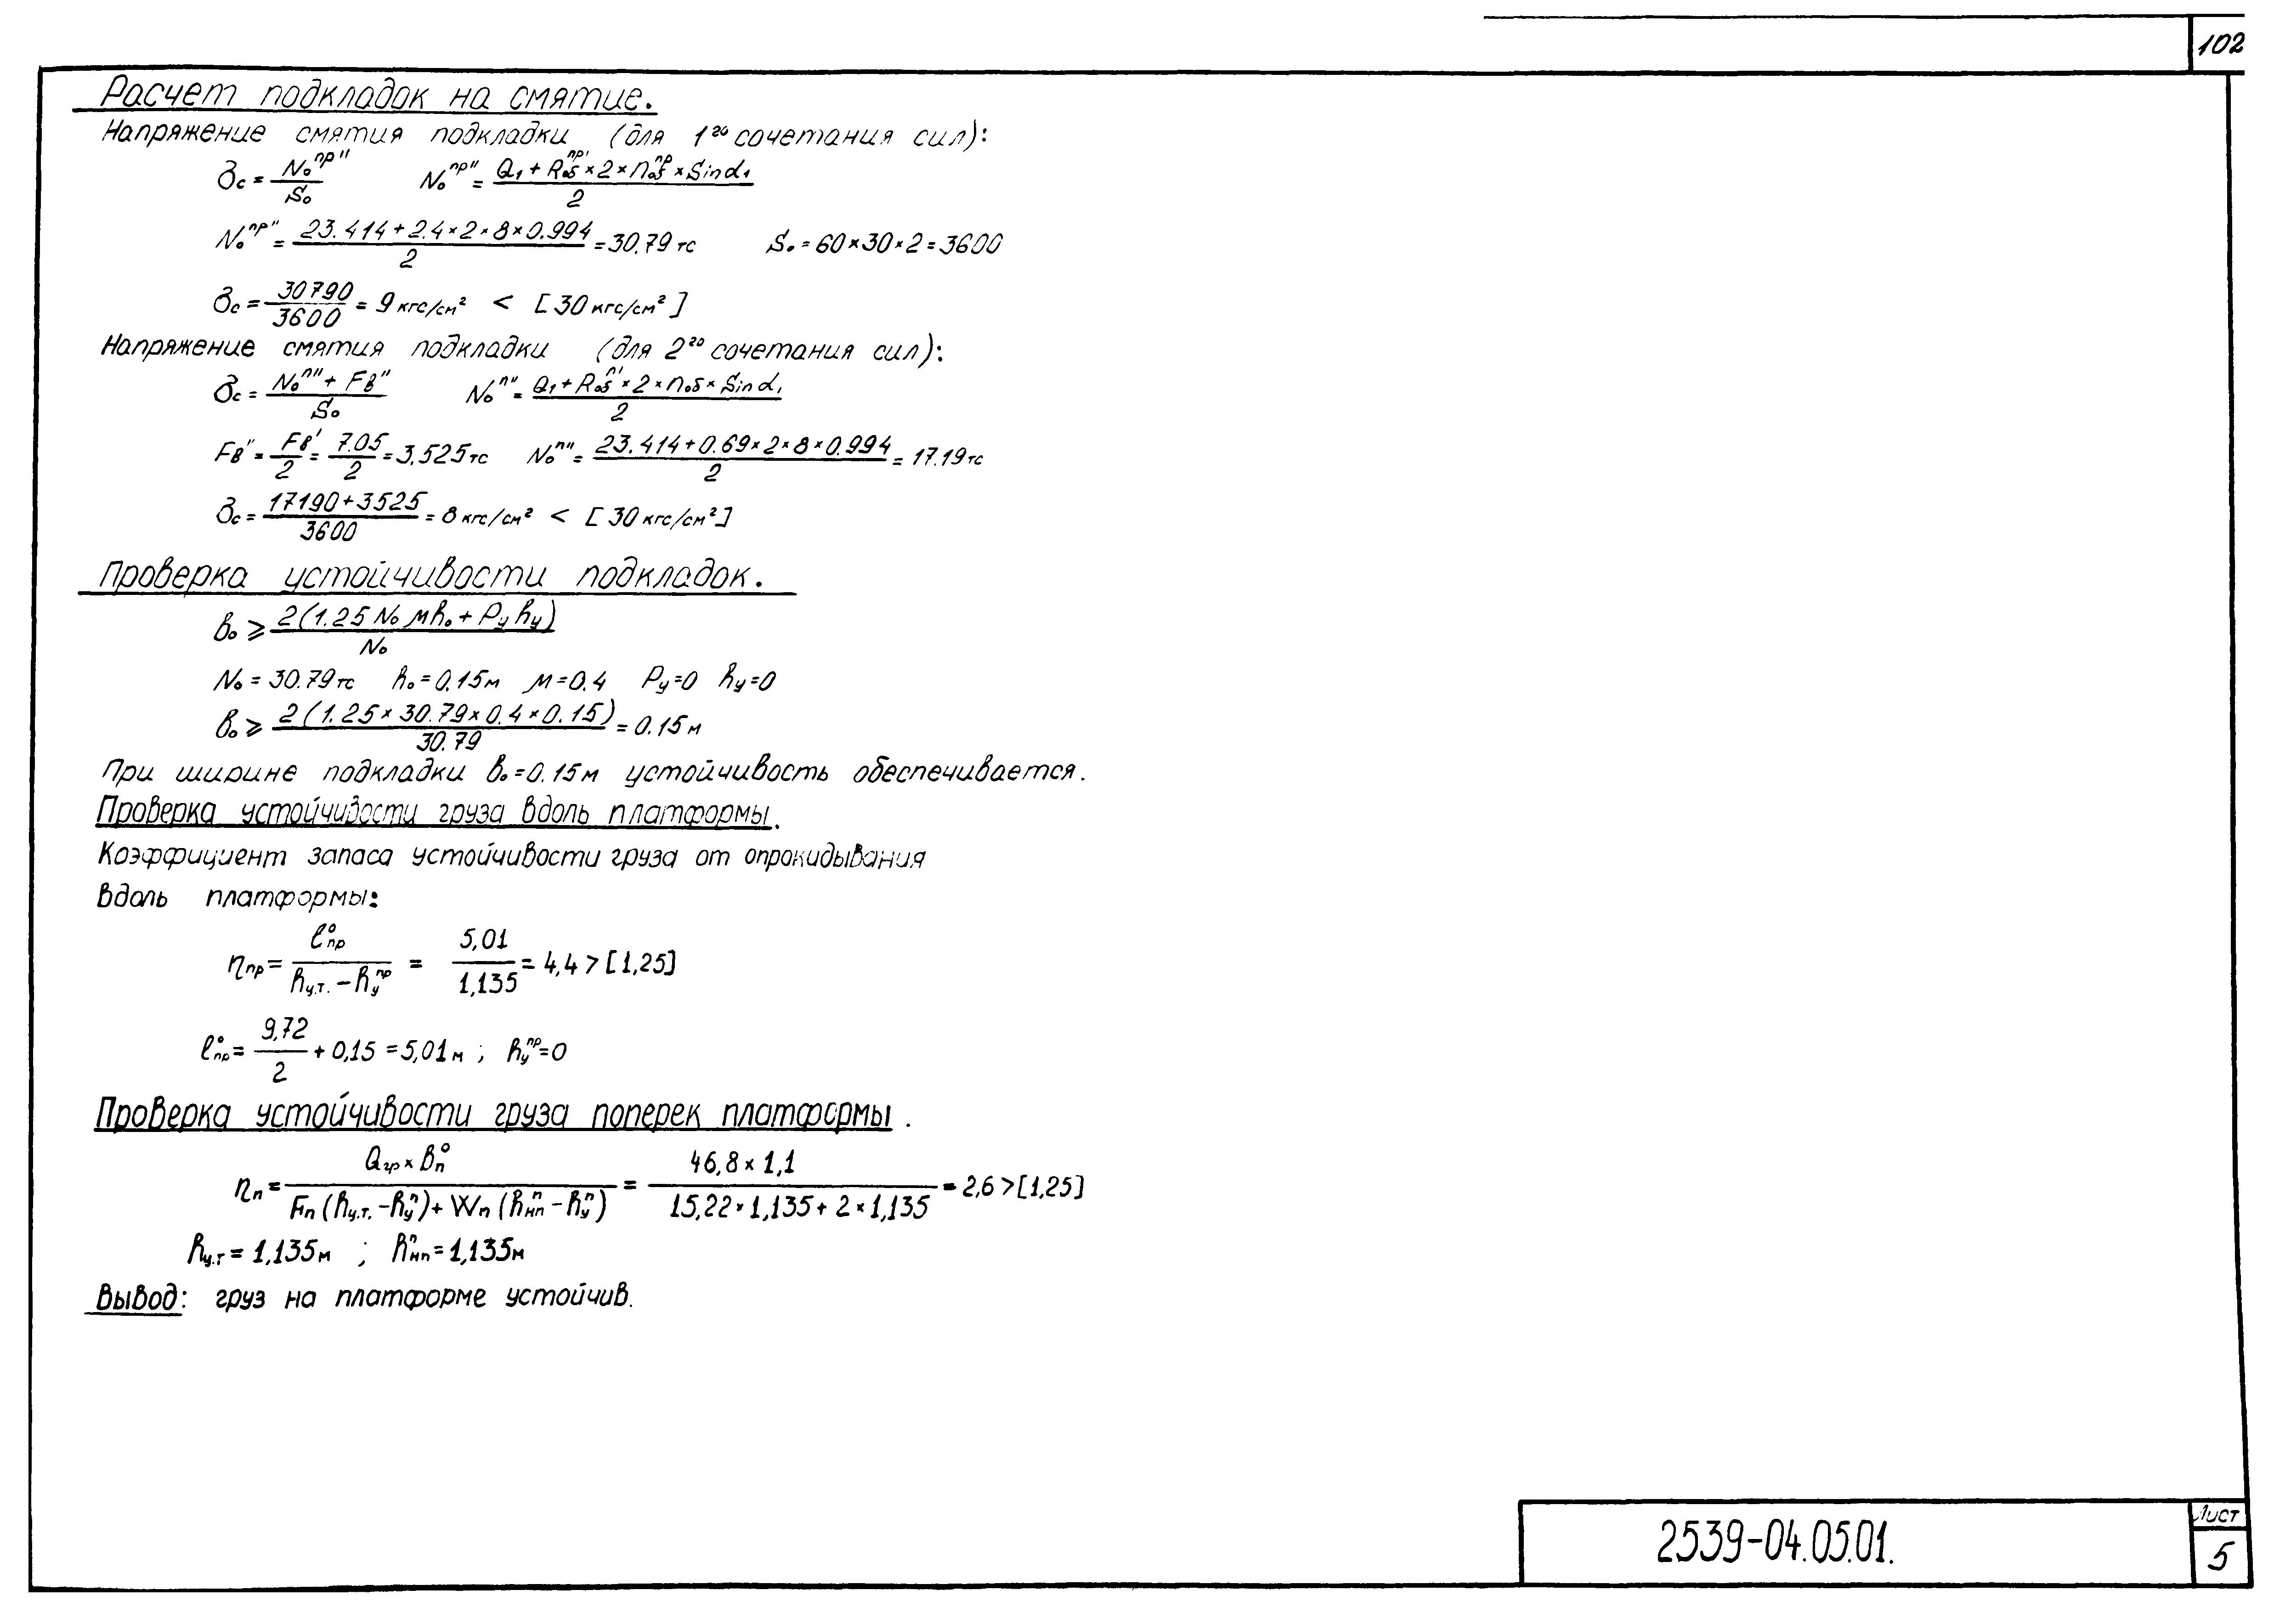 102
Расчет подкладок на смятие.
Напряжение смятия подкладки (для 1го сочетания сил):
σс = N₀пр" / S₀   N₀пр" = (Q₁ + Rобпр' × 2 × nобпр × Sin α₁) / 2
N₀пр" = (23.414 + 2.4 × 2 × 8 × 0.994) / 2 = 30.79 тс   S₀ = 60 × 30 × 2 = 3600
σс = 30790 / 3600 = 9 кгс/см² < [30 кгс/см²]
Напряжение смятия подкладки (для 2го сочетания сил):
σс = (N₀п" + Fв") / S₀   N₀п" = (Q₁ + Rобп' × 2 × nоб × Sin α₁) / 2
Fв" = Fв' / 2 = 7.05 / 2 = 3.525 тс   N₀п" = (23.414 + 0.69 × 2 × 8 × 0.994) / 2 = 17.19 тс
σс = (17190 + 3525) / 3600 = 8 кгс/см² < [30 кгс/см²]
Проверка устойчивости подкладок.
в₀ ⩾ 2(1.25 N₀ μh₀ + Pу hу) / N₀
N₀ = 30.79 тс   h₀ = 0.15 м   μ = 0.4   Pу = 0   hу = 0
в₀ ⩾ 2(1.25 × 30.79 × 0.4 × 0.15) / 30.79 = 0.15 м
При ширине подкладки в₀ = 0.15 м устойчивость обеспечивается.
Проверка устойчивости груза вдоль платформы.
Коэффициент запаса устойчивости груза от опрокидывания
вдоль платформы:
ηпр = ℓ⁰пр / (hц.т. – hупр) = 5,01 / 1,135 = 4,4 > [1,25]
ℓ⁰пр = 9,72 / 2 + 0,15 = 5,01 м ; hупр = 0
Проверка устойчивости груза поперек платформы.
ηп = Qгр × вп⁰ / (Fп (hц.т. – hуп) + Wп (hнпп – hуп)) = 46,8 × 1,1 / (15,22 × 1,135 + 2 × 1,135) = 2,6 > [1,25]
hц.т = 1,135 м ; hнпп = 1,135 м
Вывод: груз на платформе устойчив.
2539-04.05.01.
Лист
5